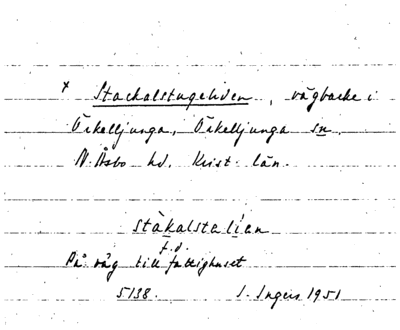 x Stackalstugeliden, vägbacke i
Örkelljunga, Örkelljunga sn.
N. Åsbo hd. Krist. län.
stàkalstalíen
f.d.
På väg till fattighuset
5138. I. Ingers 1951